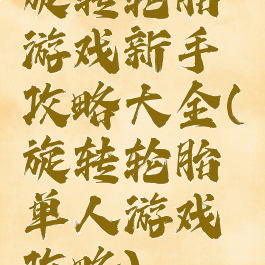 旋转轮胎
游戏新手
攻略大全(
旋转轮胎
单人游戏
攻略)